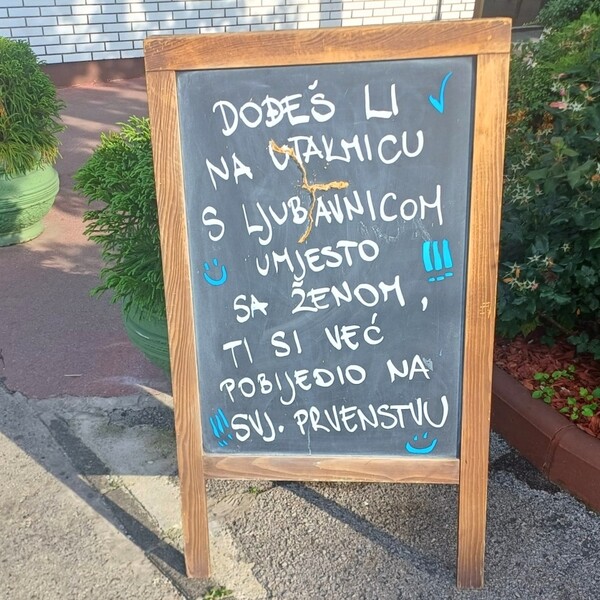 DOĐEŠ LI
NA UTAKMICU
S LJUBAVNICOM
UMJESTO
SA ŽENOM,
TI SI VEĆ
POBIJEDIO NA
SVJ. PRVENSTVU